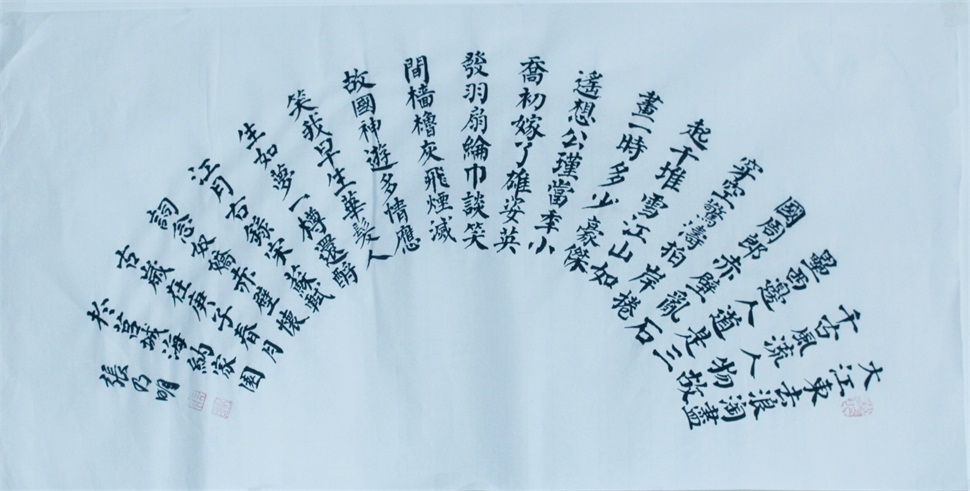 大江東去浪淘盡
千古風流人物故
壘西邊人道是三
國周郎赤壁亂石
穿空驚濤拍岸捲
起千堆雪江山如
畫一時多少豪傑
遙想公瑾當年小
喬初嫁了雄姿英
發羽扇綸巾談笑
間檣櫓灰飛煙滅
故國神遊多情應
笑我早生華髮人
生如夢一樽還酹
江月右錄宋蘇軾
詞念奴嬌赤壁懷
古歲在庚子春月
於城海納家園
張乃明